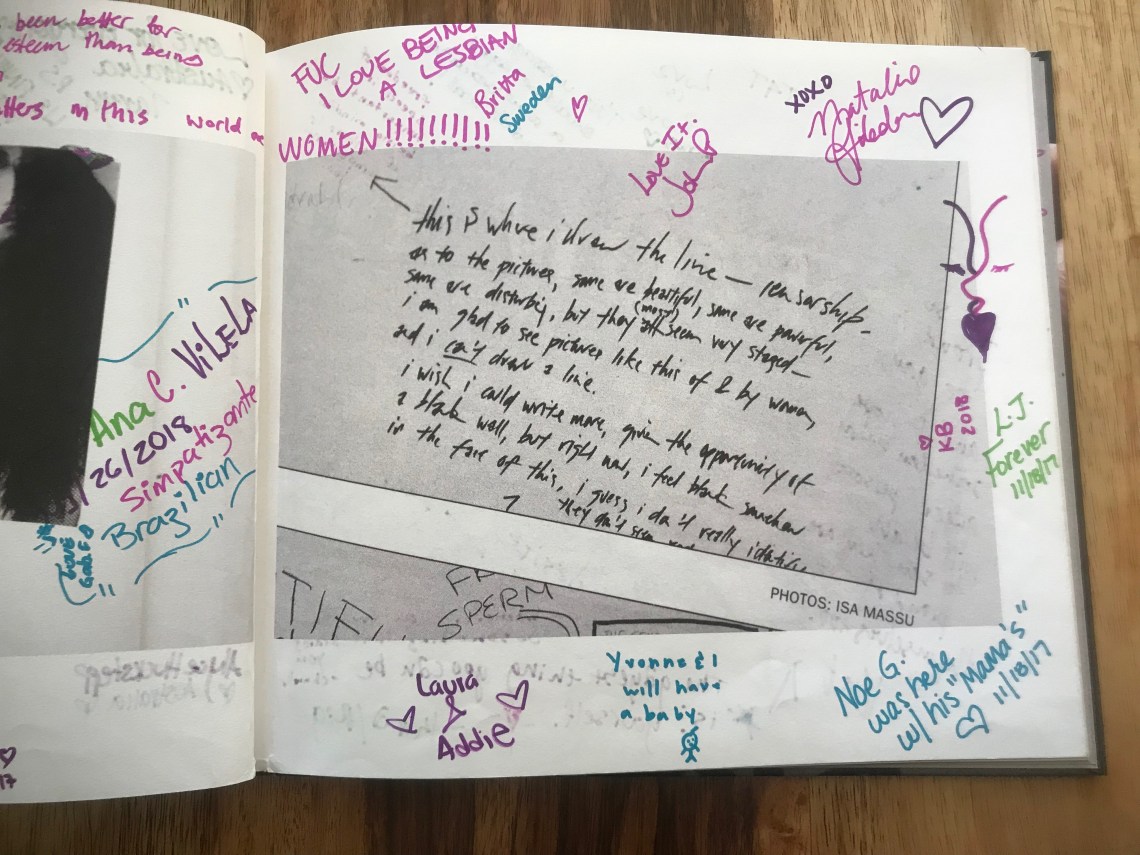 been better for
esteem than being
tters in this world
Ana C. ViLELA
/26/2018
Simpatizante
Brazilian
LOVE
FUC
I LOVE BEING
A LESBIAN
WOMEN!!!!!!!!!!
Britta
Sweden
Love It.
XOXO
Natalie
this is where i draw the line — censorship—
as to the pictures, some are beautiful, some are powerful,
some are disturbing, but they (most) all seem very staged—
i am glad to see pictures like this of & by women,
and i can't draw a line.
i wish i could write more, given the opportunity of
a blank wall, but right now, i feel blank somehow
in the face of this, i guess i don't really identify.
they don't seem
SPERM
PHOTOS: ISA MASSU
KB
2018
L.J.
Forever
11/18/17
Laura
&
Addie
Yvonne & I
will have
a baby
Noe G.
was here
w/ his "Mama's"
11/18/17